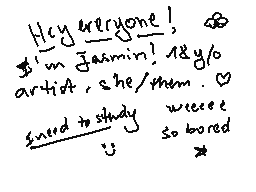 Hey everyone!
I'm Jasmin! 18 y/o
artist, she/them. ♡
I need to study
weeeee
so bored